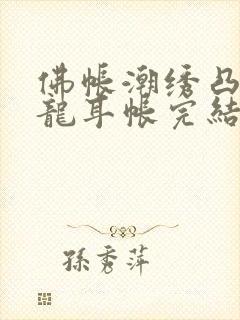 佛帳潮绣凸
龍耳帳完結
孫秀萍